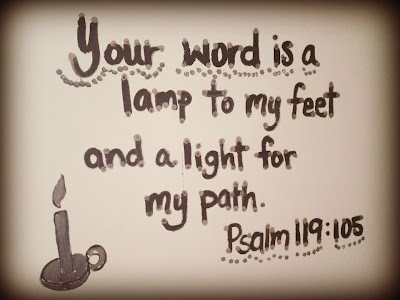 Your word is a
lamp to my feet
and a light for
my path.
Psalm 119:105